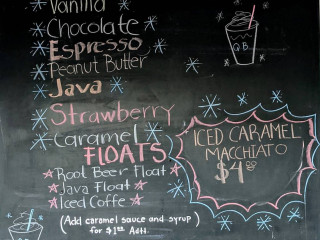 Vanilla
Chocolate
Espresso
Peanut Butter
Java
Strawberry
Caramel
FLOATS
Root Beer Float
Java Float
Iced Coffe
(Add caramel sauce and syrup)
for $1.00 Add.
Q.B.
ICED CARAMEL
MACCHIATO
$4.80